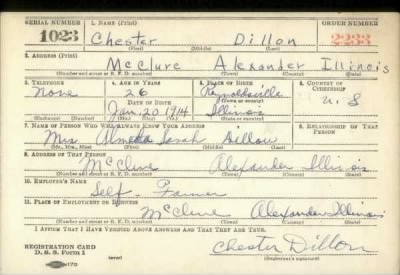 SERIAL NUMBER 1. NAME (Print) ORDER NUMBER
1023 Chester Dillon 2233
(First) (Middle) (Last)
2. ADDRESS (Print)
McClure Alexander Illinois
(Number and street or R. F. D. number) (Town) (County) (State)
3. TELEPHONE 4. AGE IN YEARS 5. PLACE OF BIRTH 6. COUNTRY OF CITIZENSHIP
None 26 Reynoldsville U. S
DATE OF BIRTH (Town or county)
Jan. 20 1914 Illinois
(Exchange) (Number) (Mo.) (Day) (Yr.) (State or country)
7. NAME OF PERSON WHO WILL ALWAYS KNOW YOUR ADDRESS 8. RELATIONSHIP OF THAT PERSON
Mrs Sarah Dillow
(Mr., Mrs., Miss) (First) (Middle) (Last)
9. ADDRESS OF THAT PERSON
McClure Alexander Illinois
(Number and street or R. F. D. number) (Town) (County) (State)
10. EMPLOYER'S NAME
Self - Farmer
11. PLACE OF EMPLOYMENT OR BUSINESS
McClure Alexander Illinois
(Number and street or R. F. D. number) (Town) (County) (State)
I AFFIRM THAT I HAVE VERIFIED ABOVE ANSWERS AND THAT THEY ARE TRUE.
REGISTRATION CARD
D. S. S. Form 1 Chester Dillon
(over) (Registrant's signature)